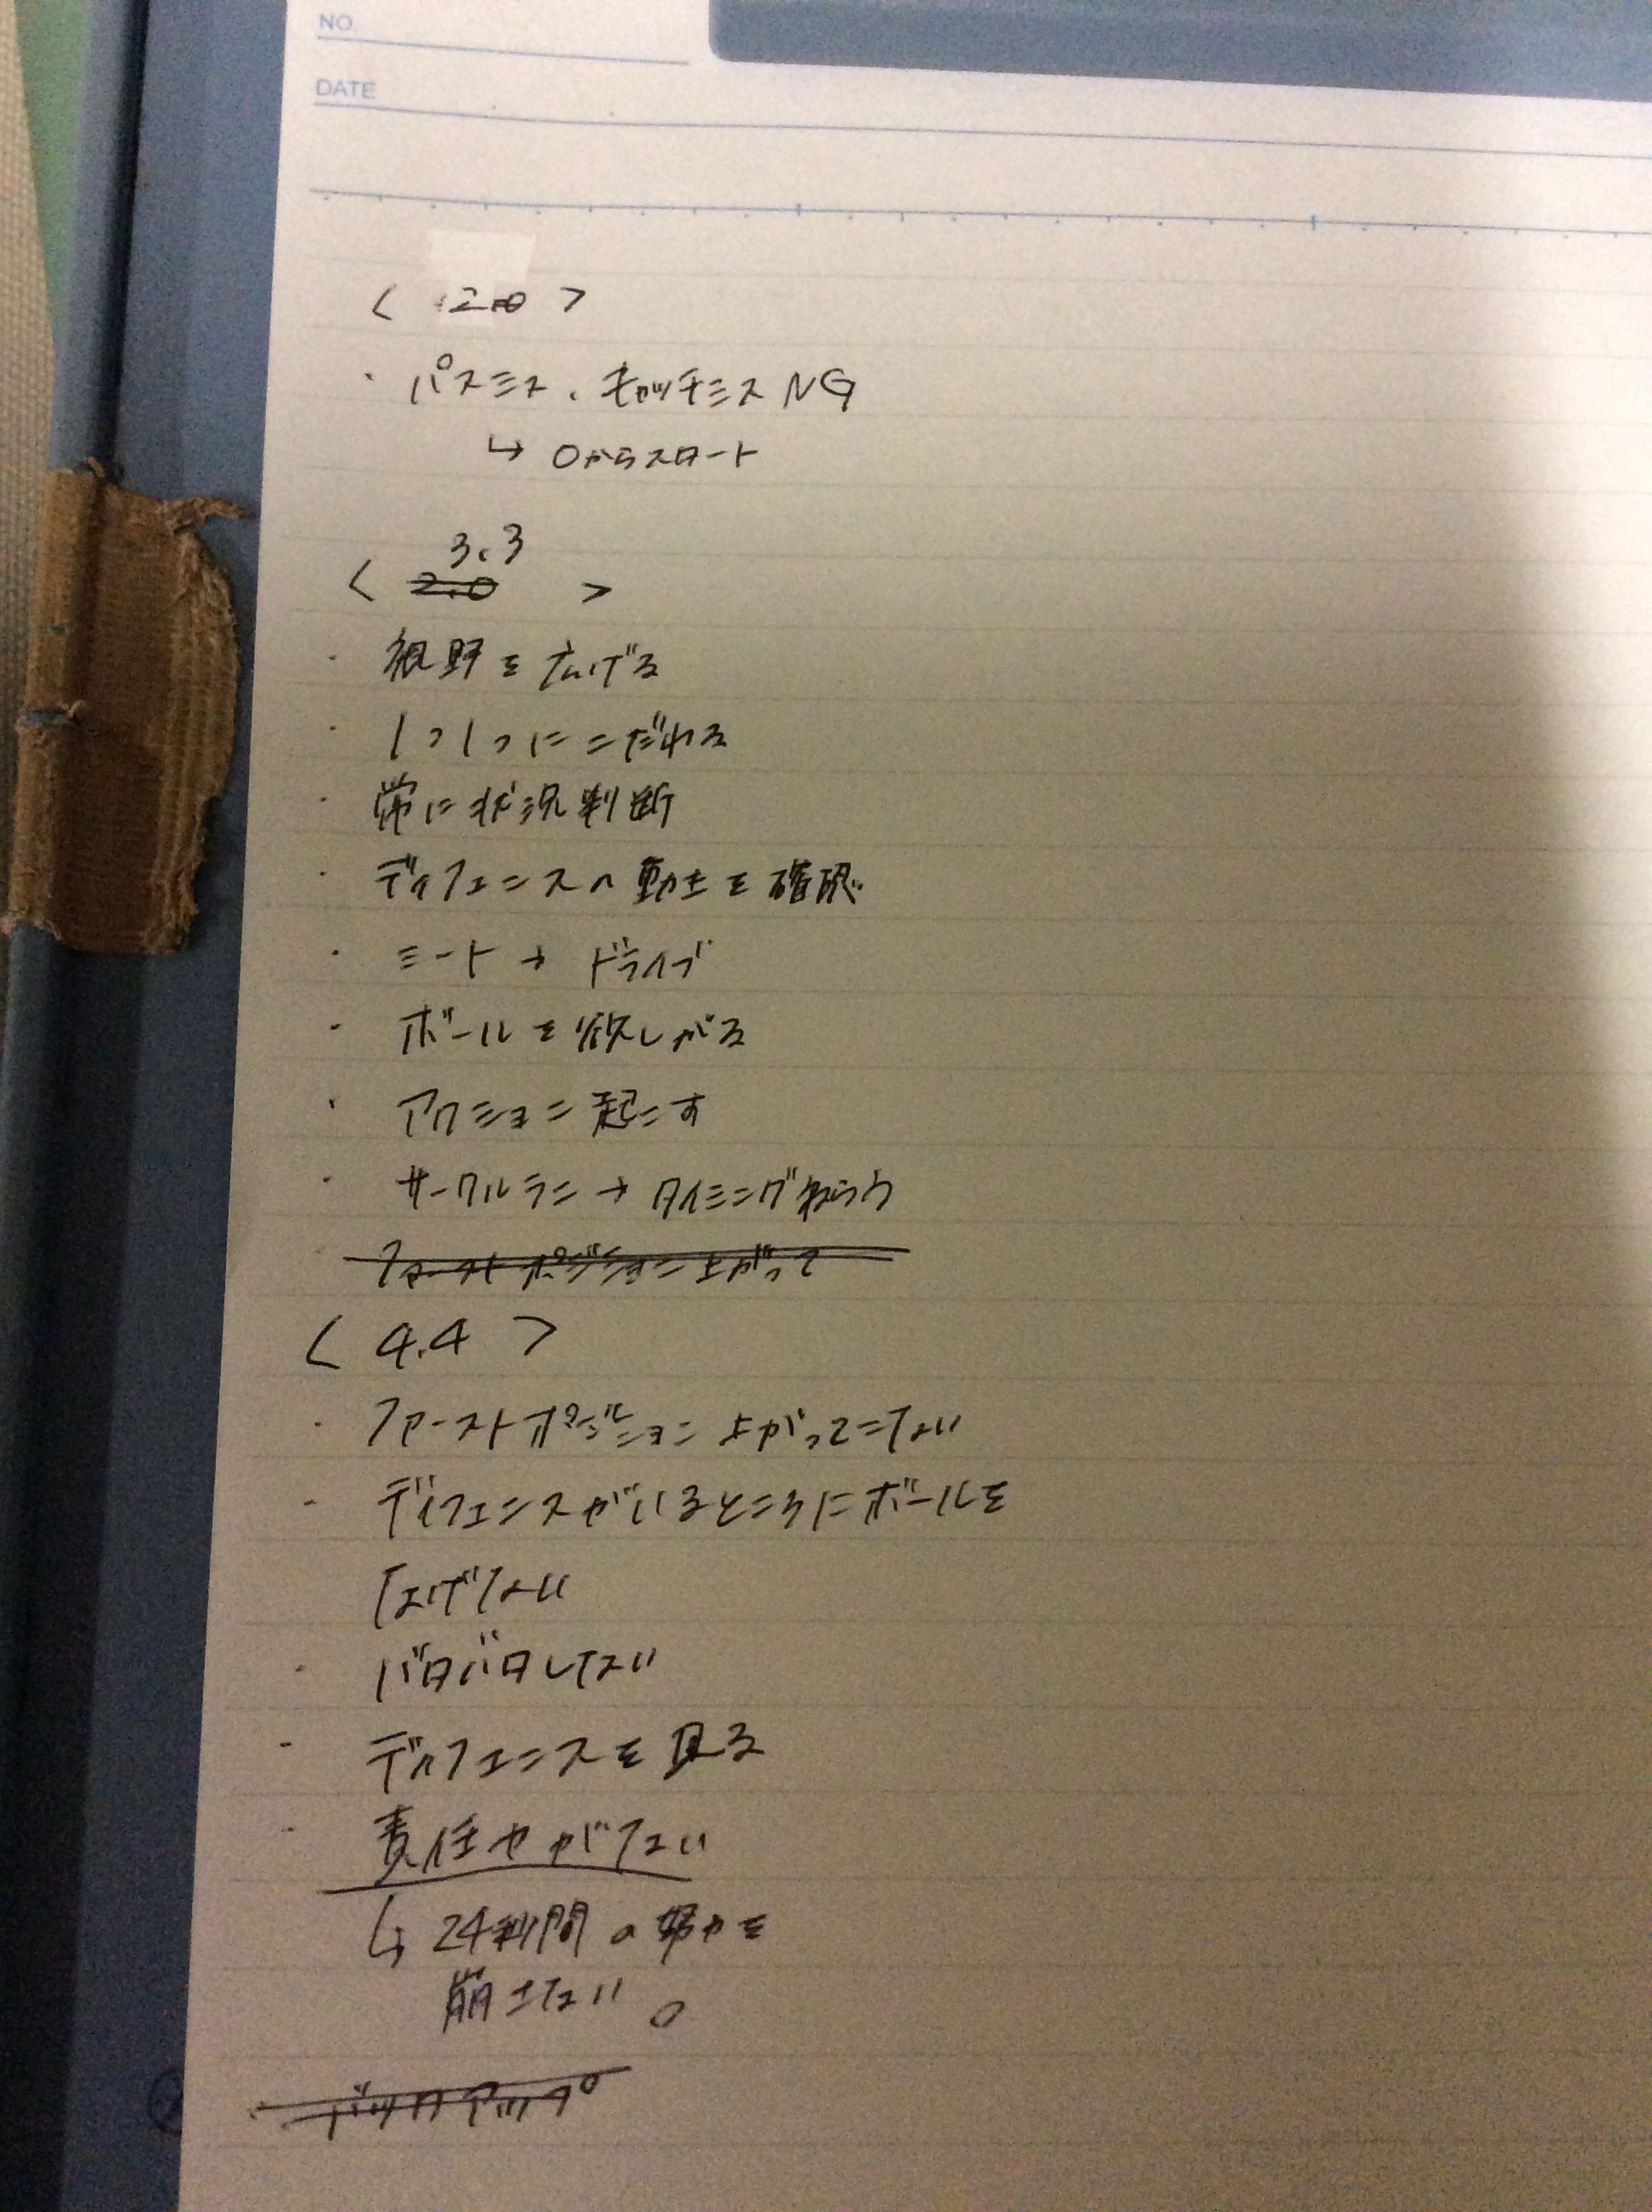 NO.
DATE
< 2.0 >
・パスミス、キャッチミスNG
↳ 0からスタート
3.3
< 2.0 >
・視野を広げる
・1つ1つにこだわる
・常に状況判断
・ディフェンスの動きを確認
・ミート→ドライブ
・ボールを欲しがる
・アクション起こす
・サークルラン→タイミングねらう
ファーストポジション上がって
< 4.4 >
・ファーストポジション上がってこない
・ディフェンスがいるところにボールを
なげない
・バタバタしない
・ディフェンスを見る
・責任やがない
↳ 24秒間の努力を
崩さない。
・バックアップ